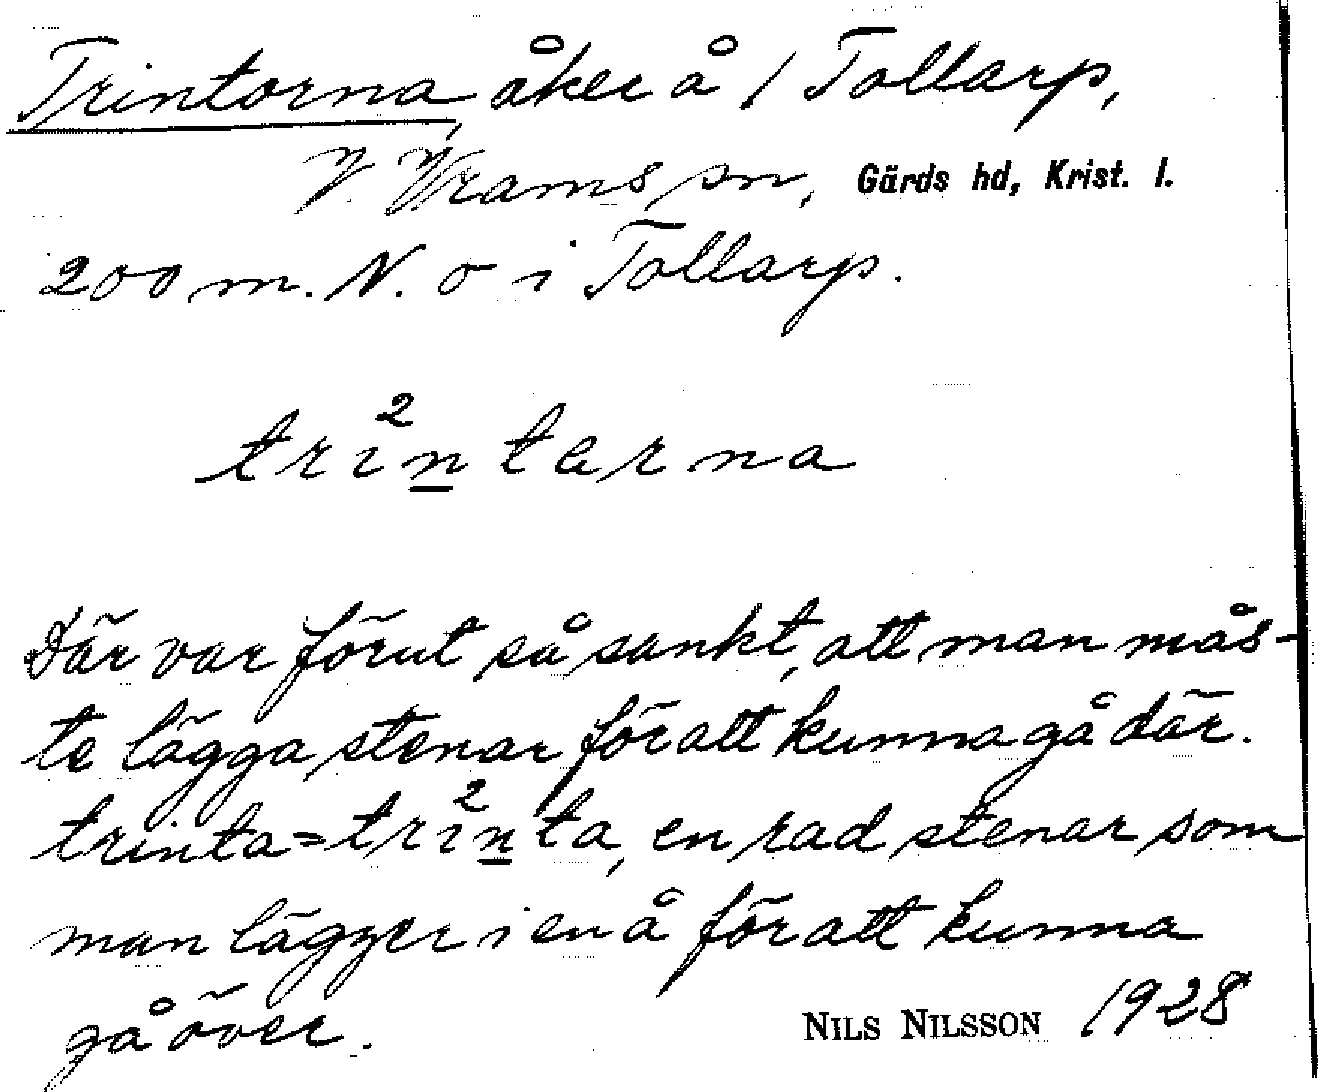 Trintorna, åker å 1 Tollarp,
V. Vrams sn, Gärds hd, Krist. l.
200 m. N. o i Tollarp.
2
trintarna
Där var förut så sankt, att man mås-
te lägga stenar för att kunna gå där.
2
trinta = trinta, en rad stenar som
man lägger i en å för att kunna
gå över.
NILS NILSSON 1928